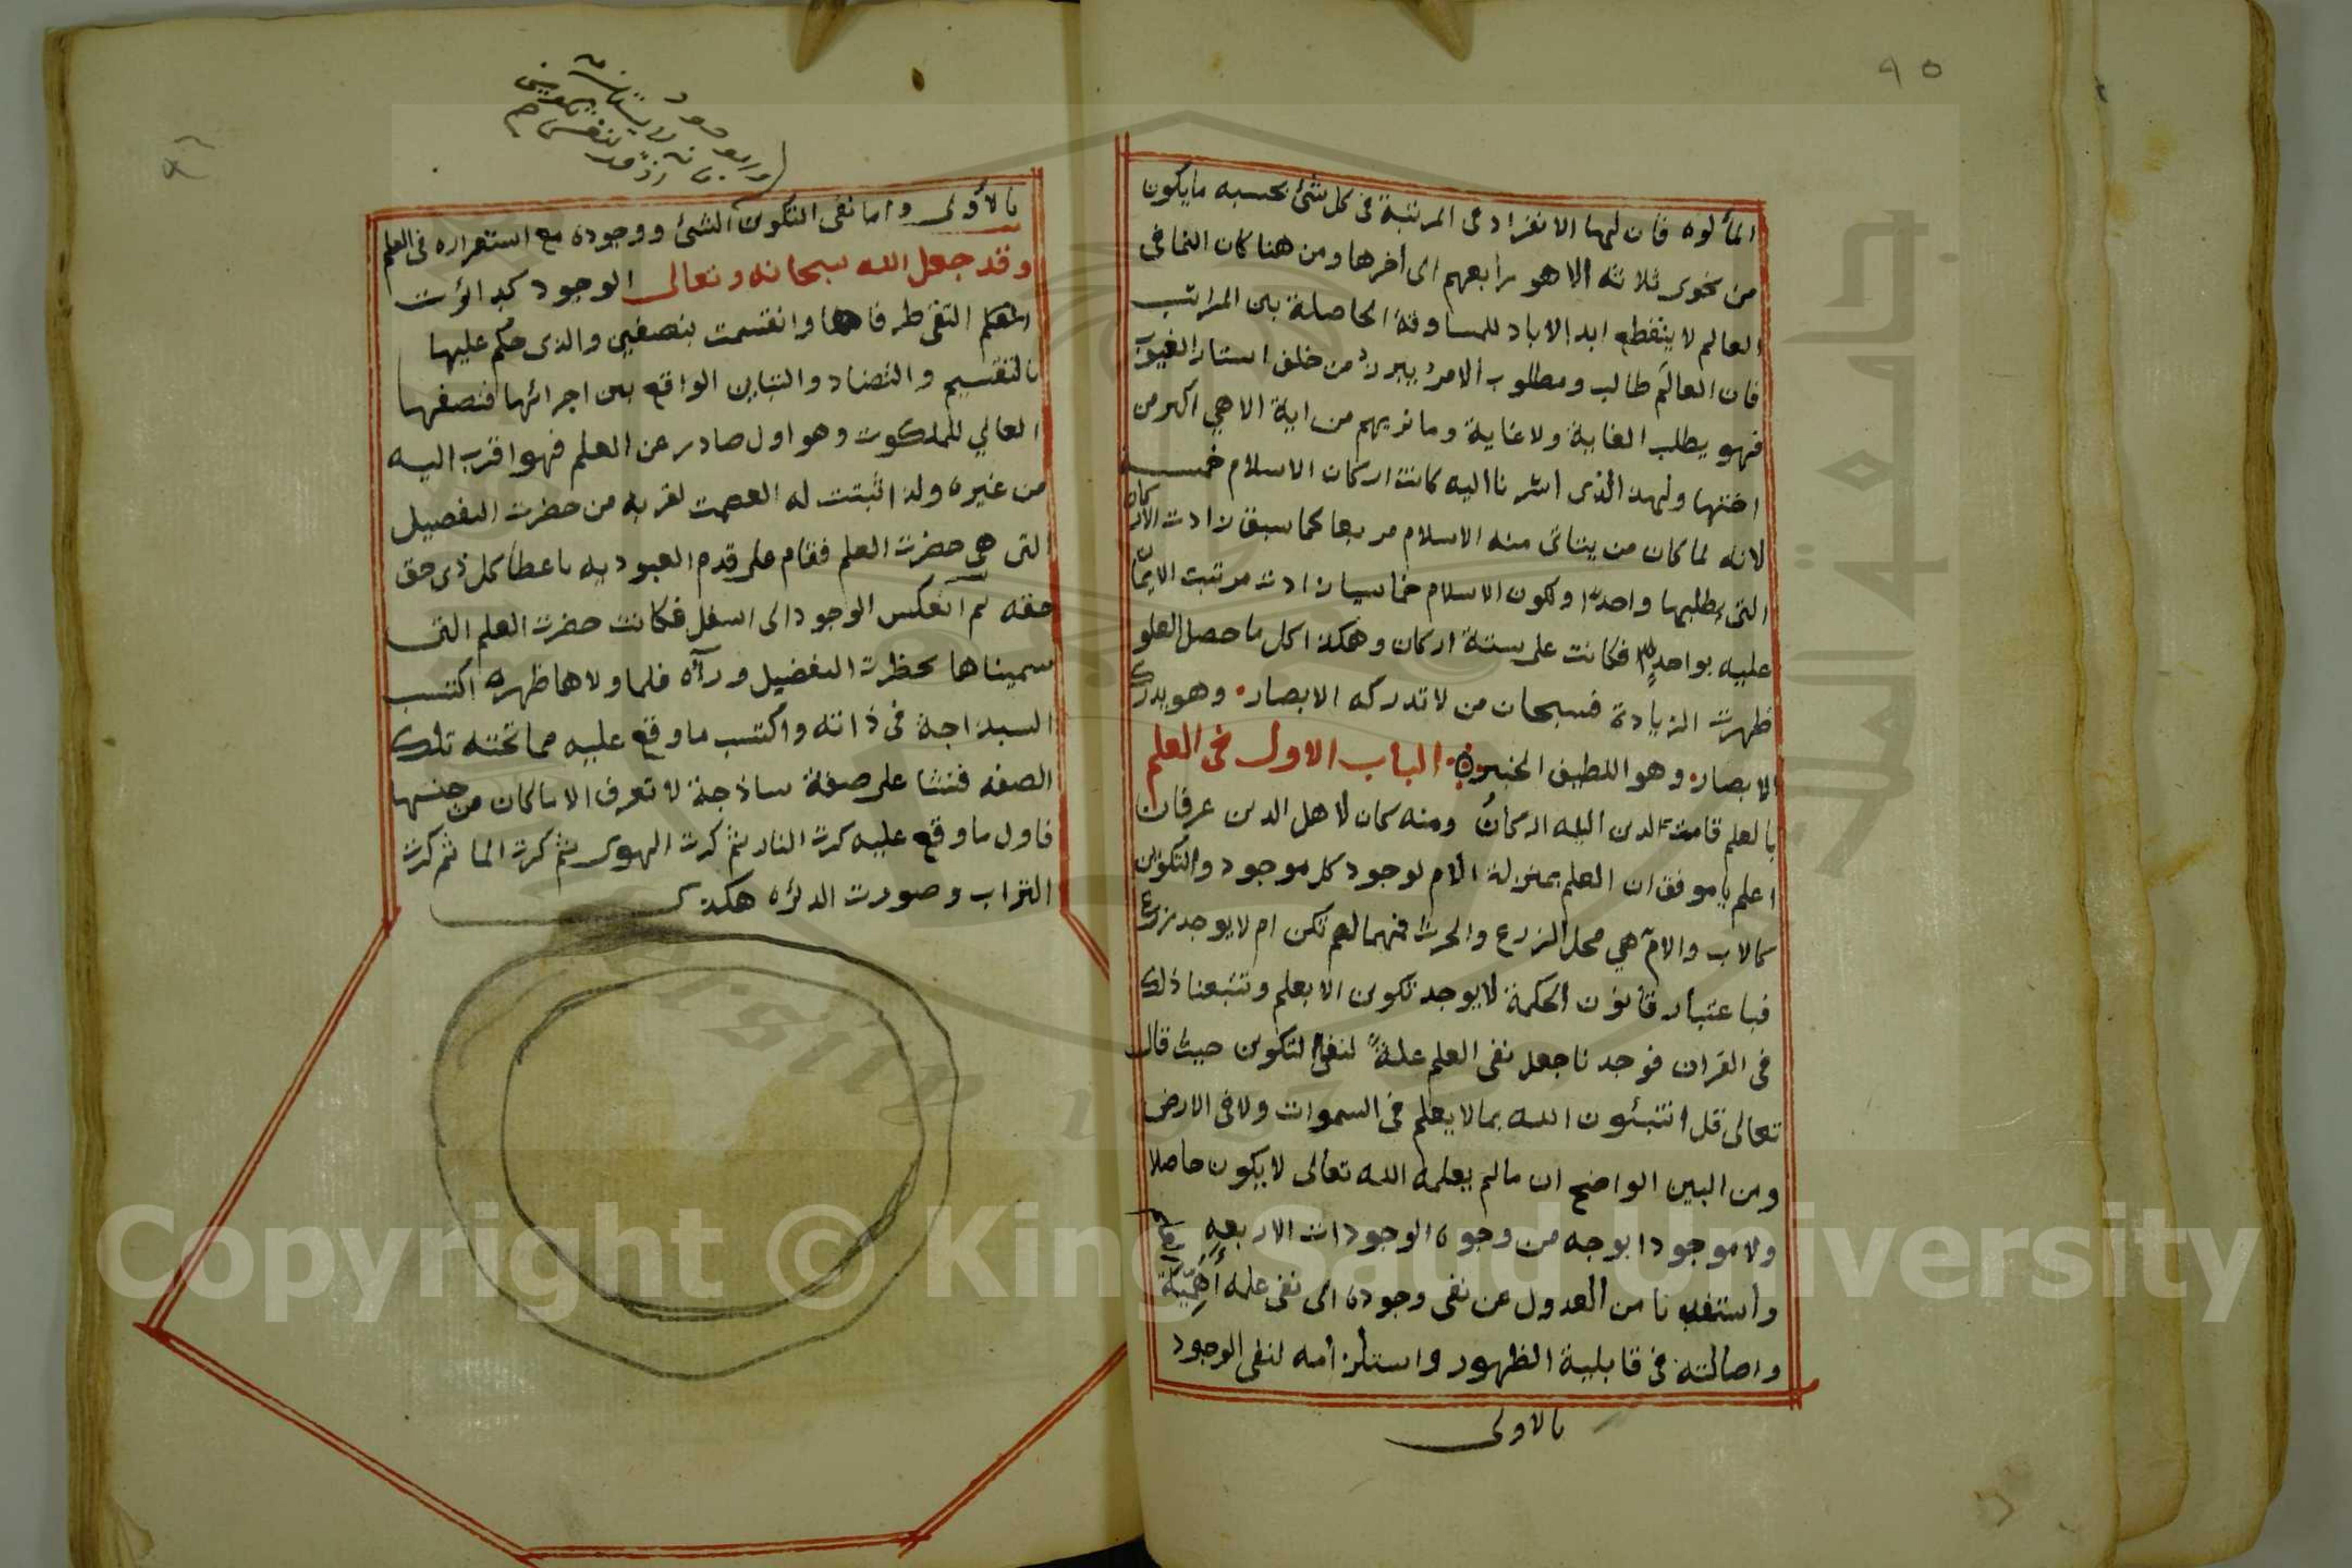 ٩٥
المألوه فان لها الانفراد عن المرتبة فى كل شئ بحسبه مايكون
من نجوى ثلاثة الا هو رابعهم الى اخرها ومن هنا كان النما فى
العالم لا ينقطع ابد الاباد للمساوقة الحاصلة بين المراتب
فان العالم طالب ومطلوب الامر يبرز من خلف استار الغيوب
فهو يطلب الغاية ولا غاية وما نريهم من اية الا هي اكبر من
اختها ولهذ الذى اشرنا اليه كانت اركان الاسلام خمسة
لانه لما كان من يتاتى منه الاسلام مربعا كما سبق زادت الاركان
التى يطلبها واحدا ولكون الاسلام خماسيا زادت مرتبت الايمان
عليه بواحد فكانت على ستة اركان وهكذا كل ما حصل العلو
ظهرت الزيادة فسبحان من لا تدركه الابصار وهو يدرك
الابصار وهو اللطيف الخبير الباب الاول فى العلم
بالعلم قامت الدين اليله اركان ومنه كان لاهل الدين عرفان
اعلم يا موفق ان العلم بمنزلة الام لوجود كل موجود والتكوين
كالاب والام هي محل الزرع والحرث فمهما لم تكن ام لا يوجد زرع
فباعتبار قانون الحكمة لا يوجد تكوين الا بعلم وتتبعنا ذلك
فى القران فوجدنا جعل نفى العلم علة لنفى التكوين حيث قال
تعالى قل اتنبئون الله بما لا يعلم فى السموات ولا فى الارض
ومن البين الواضح ان مالم يعلمه الله تعالى لا يكون حاصلا
ولا موجودا بوجه من وجوه الوجودات الاربعه
واستفدنا من العدول عن نفى وجوده الى نفى علمه اهمية
واصالته فى قابلية الظهور واستلزامه لنفى الوجود
بالاولى
بالاولى واما نفى التكوين الشئ ووجوده مع استقراره فى العلم
وقد جعل الله سبحانه وتعالى الوجود كدائرت
التقى طرفاها وانقسمت بنصفين والذى حكم عليها
بالتقسيم والتضاد والتباين الواقع بين اجزائها فنصفها
العالي للملكوت وهو اول صادر عن العلم فهو اقرب اليه
من غيره ولذا ثبتت له العصمت لقربه من حضرت التفصيل
التى هى حضرت العلم فقام على قدم العبوديه باعطا كل ذى حق
حقه ثم انعكس الوجود الى اسفل فكانت حضرت العلم التى
سميناها بحظرت التفضيل ورآه فلما ولاها ظهره اكتسب
السذاجة فى ذاته واكتسب ما وقع عليه مما تحته تلك
الصفه فنشا على صفة ساذجة لا تعرف الا ما كان من جنسها
فاول ما وقع عليه كرت النار ثم كرت الهوى ثم كرت الما ثم كرت
التراب وصورت الدئره هكذ
Copyright © King Saud University